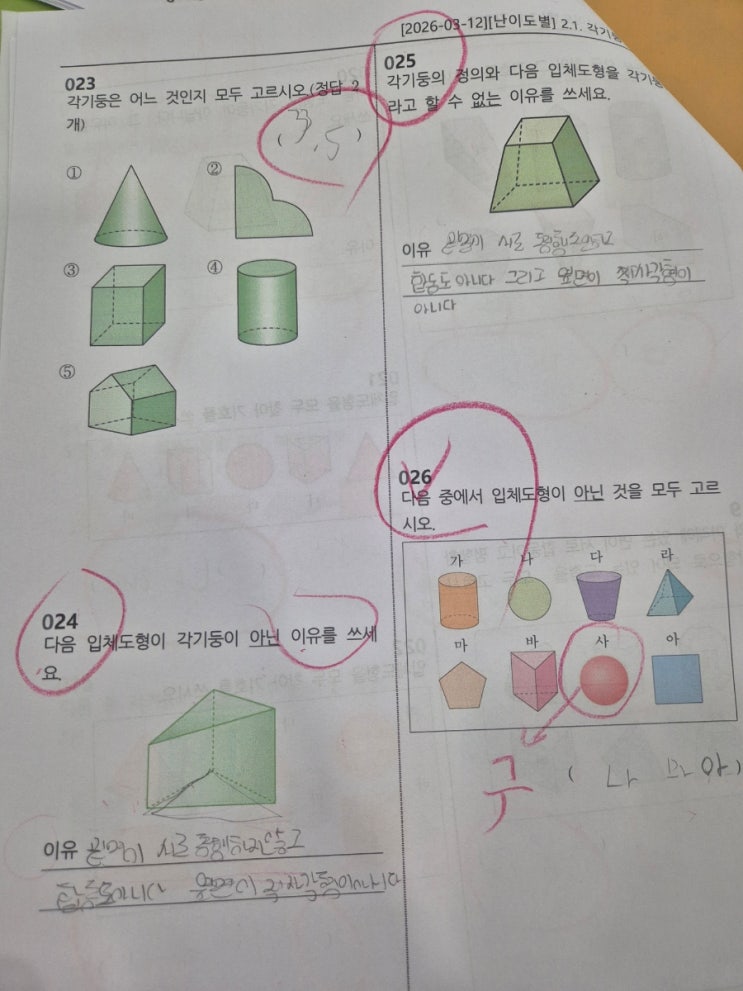 [2026-03-12][난이도별] 2.1. 각기둥
023
각기둥은 어느 것인지 모두 고르시오.(정답 2
개)
( 3, 5 )
①
②
③
④
⑤
024
다음 입체도형이 각기둥이 아닌 이유를 쓰세
요.
이유 끝면이 서로 평행하지않고
합동도아니다 옆면이 직사각형이아니다
025
각기둥의 정의와 다음 입체도형을 각기둥이
라고 할 수 없는 이유를 쓰세요.
이유 서로
합동도 아니다 그리고 옆면이 직사각형이
아니다
026
다음 중에서 입체도형이 아닌 것을 모두 고르
시오.
가 나 다 라
마 바 사 아
구
( 나 마 아 )